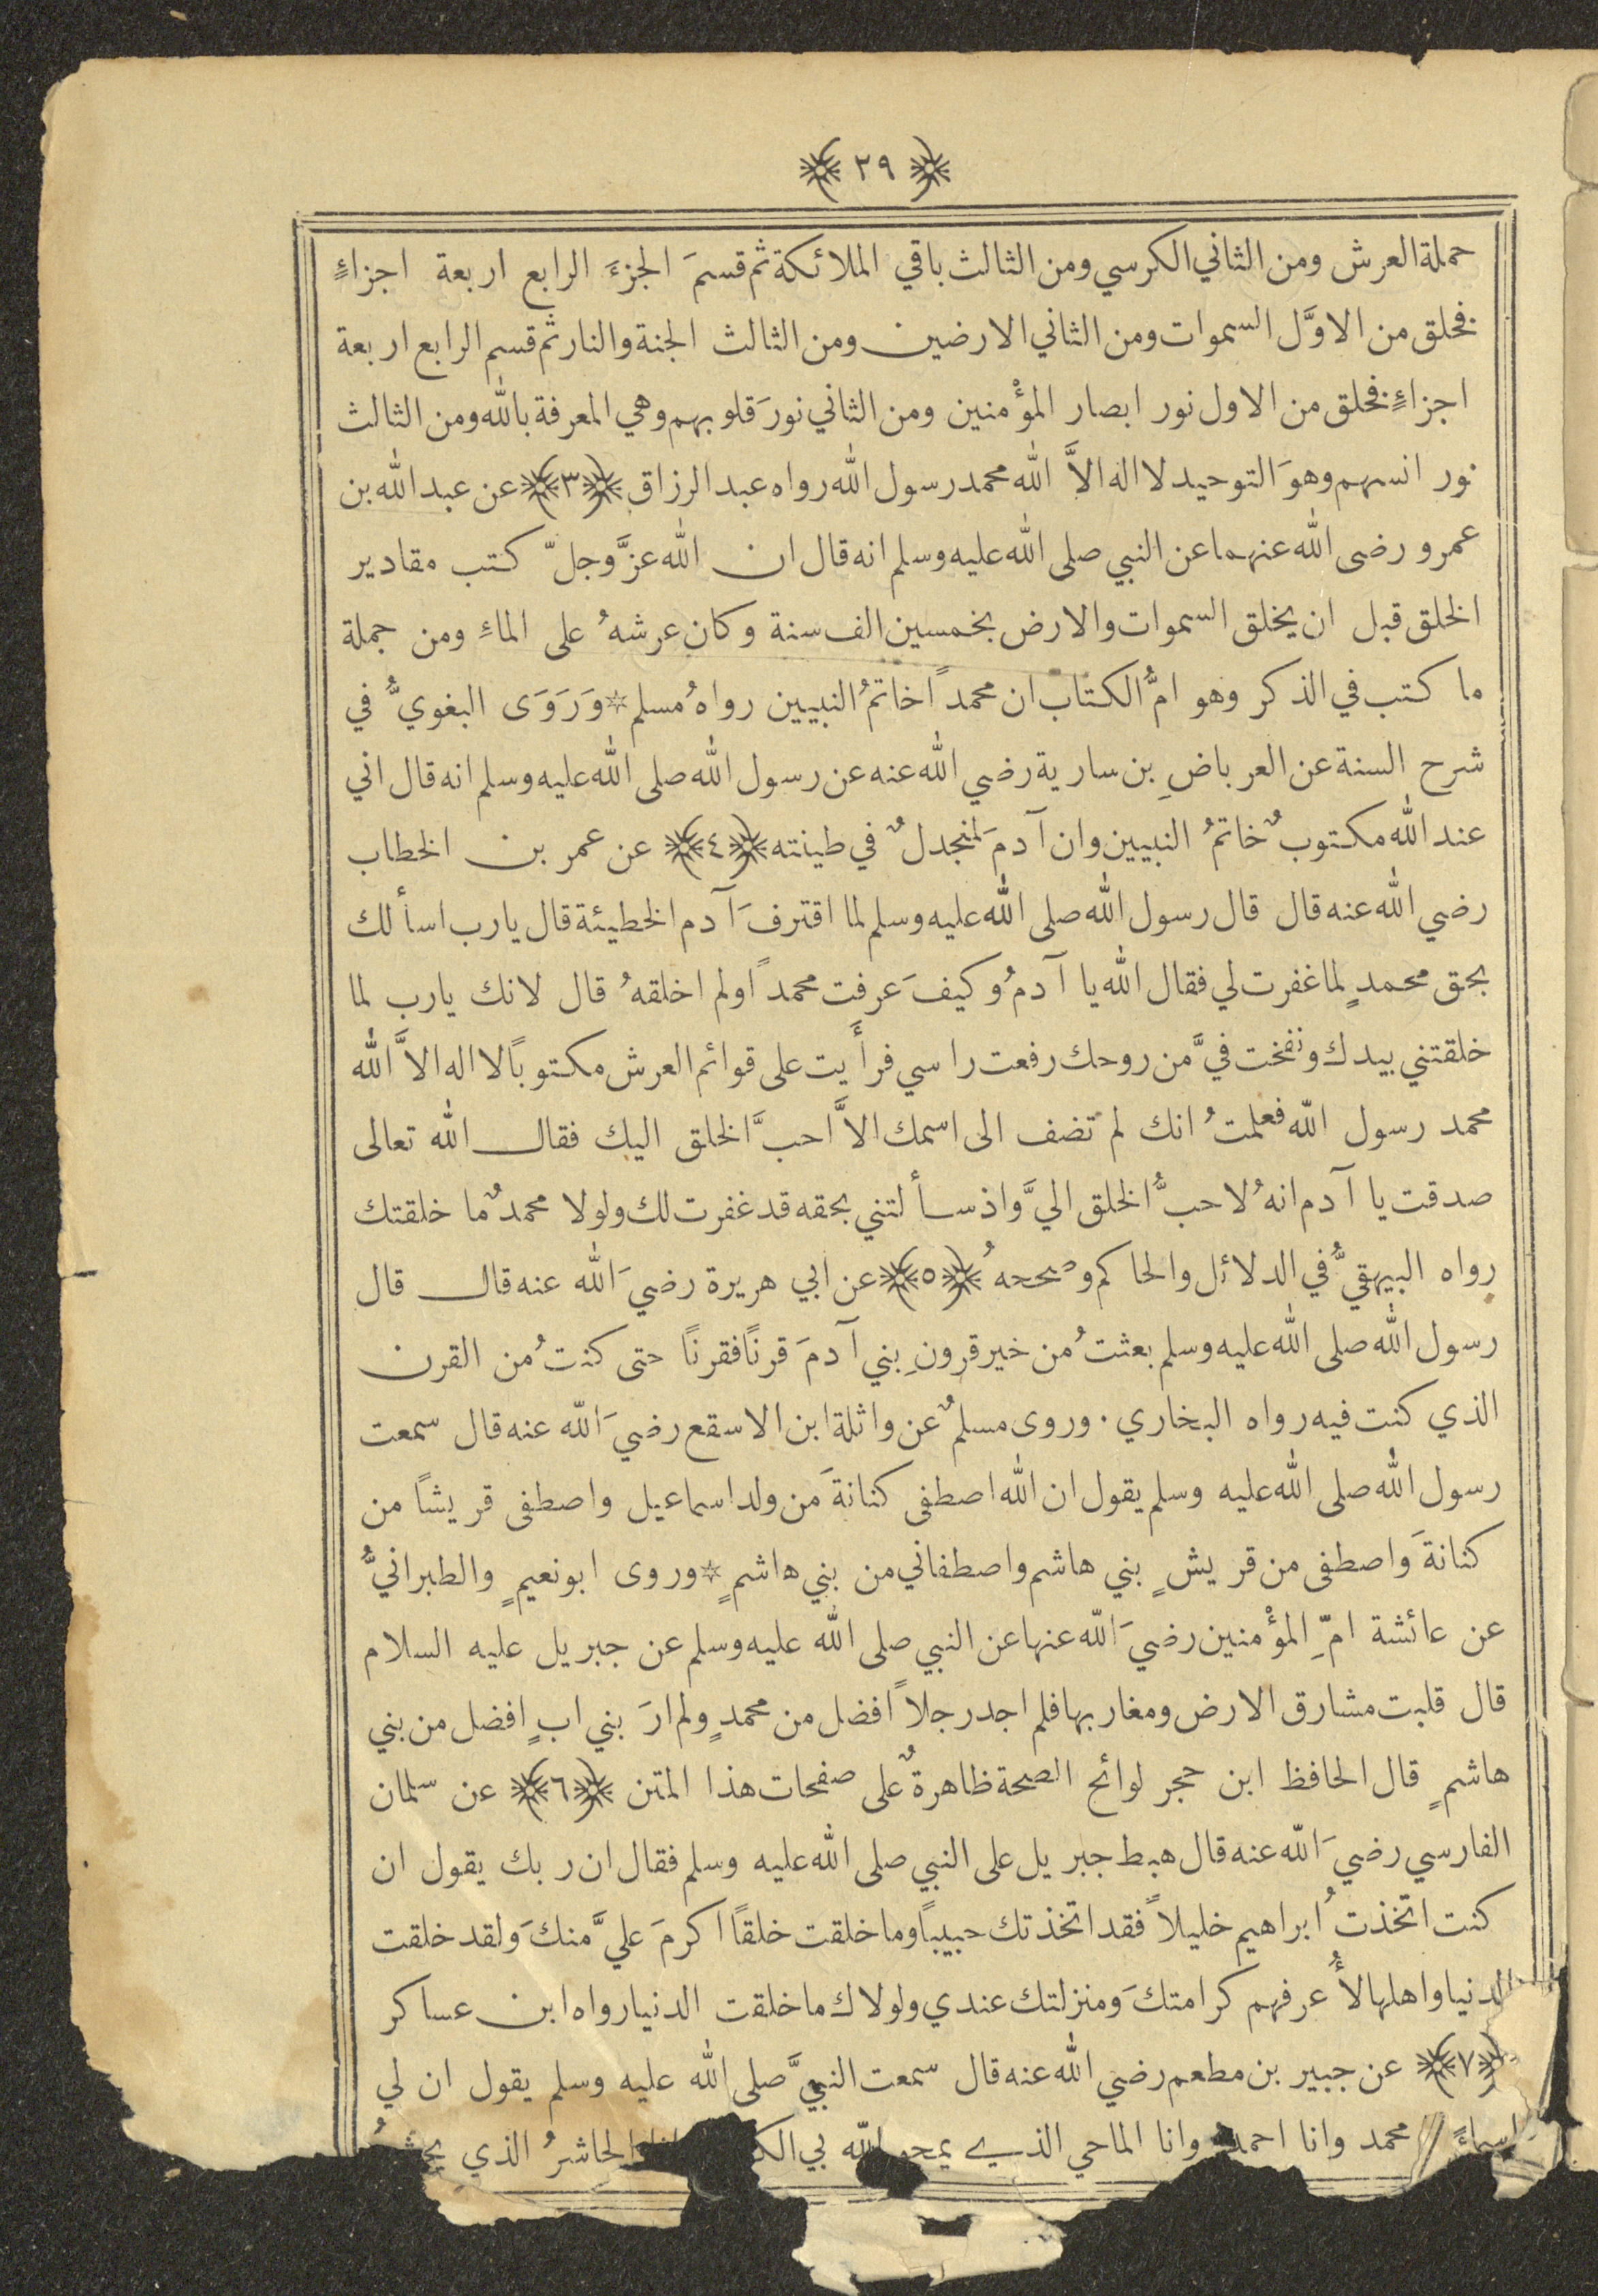 ﴿ ٢٩ ﴾
حملة العرش ومن الثاني الكرسي ومن الثالث باقي الملائكة ثم قسمَ الجزءَ الرابع اربعة اجزاءٍ
فخلق من الاوَّل السموات ومن الثاني الارضين ومن الثالث الجنة والنار ثم قسم الرابع اربعة
اجزاءٍ فخلق من الاول نور ابصار المؤْمنين ومن الثاني نورَ قلوبهم وهي المعرفة بالله ومن الثالث
نور انسهم وهوَ التوحيد لا اله الاَّ الله محمد رسول الله رواه عبد الرزاق ﴿٣﴾ عن عبد الله بن
عمرو رضى الله عنهما عن النبي صلى الله عليه وسلم انه قال ان الله عزَّ وجلّ كتب مقادير
الخلق قبل ان يخلق السموات والارض بخمسين الف سنة وكان عرشهُ على الماءِ ومن جملة
ما كتب في الذكر وهو امُّ الكتاب ان محمداً خاتمُ النبيين رواهُ مسلم * وَرَوَى البغويُّ في
شرح السنة عن العرباضِ بن سارية رضي الله عنه عن رسول الله صلى الله عليه وسلم انه قال اني
عند الله مكتوبٌ خاتمُ النبيين وان آدمَ لمنجدلٌ في طينته ﴿٤﴾ عن عمر بن الخطاب
رضي الله عنه قال قال رسول الله صلى الله عليه وسلم لما اقترفَ آدم الخطيئة قال يارب اسألك
بحق محمدٍ لما غفرت لي فقال الله يا آدمُ وكيفَ عرفت محمداً ولم اخلقهُ قال لانك يارب لما
خلقتني بيدك ونفخت فيَّ من روحك رفعت راسي فرأَيت على قوائم العرش مكتوبًا لا اله الاَّ الله
محمد رسول الله فعلمتُ انك لم تضف الى اسمك الاَّ احبَّ الخلق اليك فقال الله تعالى
صدقت يا آدم انهُ لاحبُّ الخلق اليَّ واذ سأ لتني بحقه قد غفرت لك ولولا محمدٌ ما خلقتك
رواه البيهقيُّ في الدلائل والحاكم وصححهُ ﴿٥﴾ عن ابي هريرة رضيَ الله عنه قال قال
رسول الله صلى الله عليه وسلم بعثتُ من خير قرونِ بني آدمَ قرنًا فقرنًا حتى كنتُ من القرن
الذي كنت فيه رواه البخاري . وروى مسلمٌ عن واثلة ابن الاسقع رضيَ الله عنه قال سمعت
رسول الله صلى الله عليه وسلم يقول ان الله اصطفى كنانةَ من ولد اسماعيل واصطفى قريشاً من
كنانةَ واصطفى من قريشٍ بني هاشم واصطفاني من بني هاشمٍ * وروى ابو نعيمٍ والطبرانيُّ
عن عائشة امِّ المؤْمنين رضيَ الله عنها عن النبي صلى الله عليه وسلم عن جبريل عليه السلام
قال قلبت مشارق الارض ومغاربها فلم اجد رجلاً افضل من محمدٍ ولم ارَ بني ابٍ افضل من بني
هاشمٍ قال الحافظ ابن حجر لوائح الصحة ظاهرةٌ على صفحات هذا المتن ﴿٦﴾ عن سلمان
الفارسي رضيَ الله عنه قال هبط جبريل على النبي صلى الله عليه وسلم فقال ان ربك يقول ان
كنت اتخذتُ ابراهيم خليلاً فقد اتخذتك حبيباً وما خلقت خلقًا اكرمَ عليَّ منكَ ولقد خلقت
الدنيا واهلها لأُعرفهم كرامتكَ ومنزلتك عندي ولولاك ما خلقت الدنيا رواه ابن عساكر
﴿٧﴾ عن جبير بن مطعم رضي الله عنه قال سمعت النبيَّ صلى الله عليه وسلم يقول ان لي
اسماءً محمد وانا احمدُ وانا الماحي الذي يمحو الله بي الحاشرُ الذي